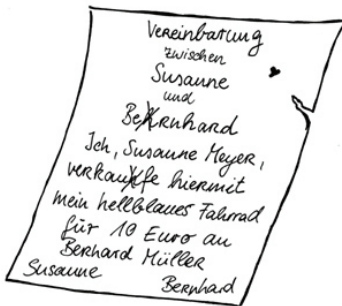 Vereinbarung
zwischen
Susanne
und
Bernhard
Ich, Susanne Meyer,
verkaufe hiermit
mein hellblaues Fahrrad
für 10 Euro an
Berhard Müller
Susanne
Bernhard